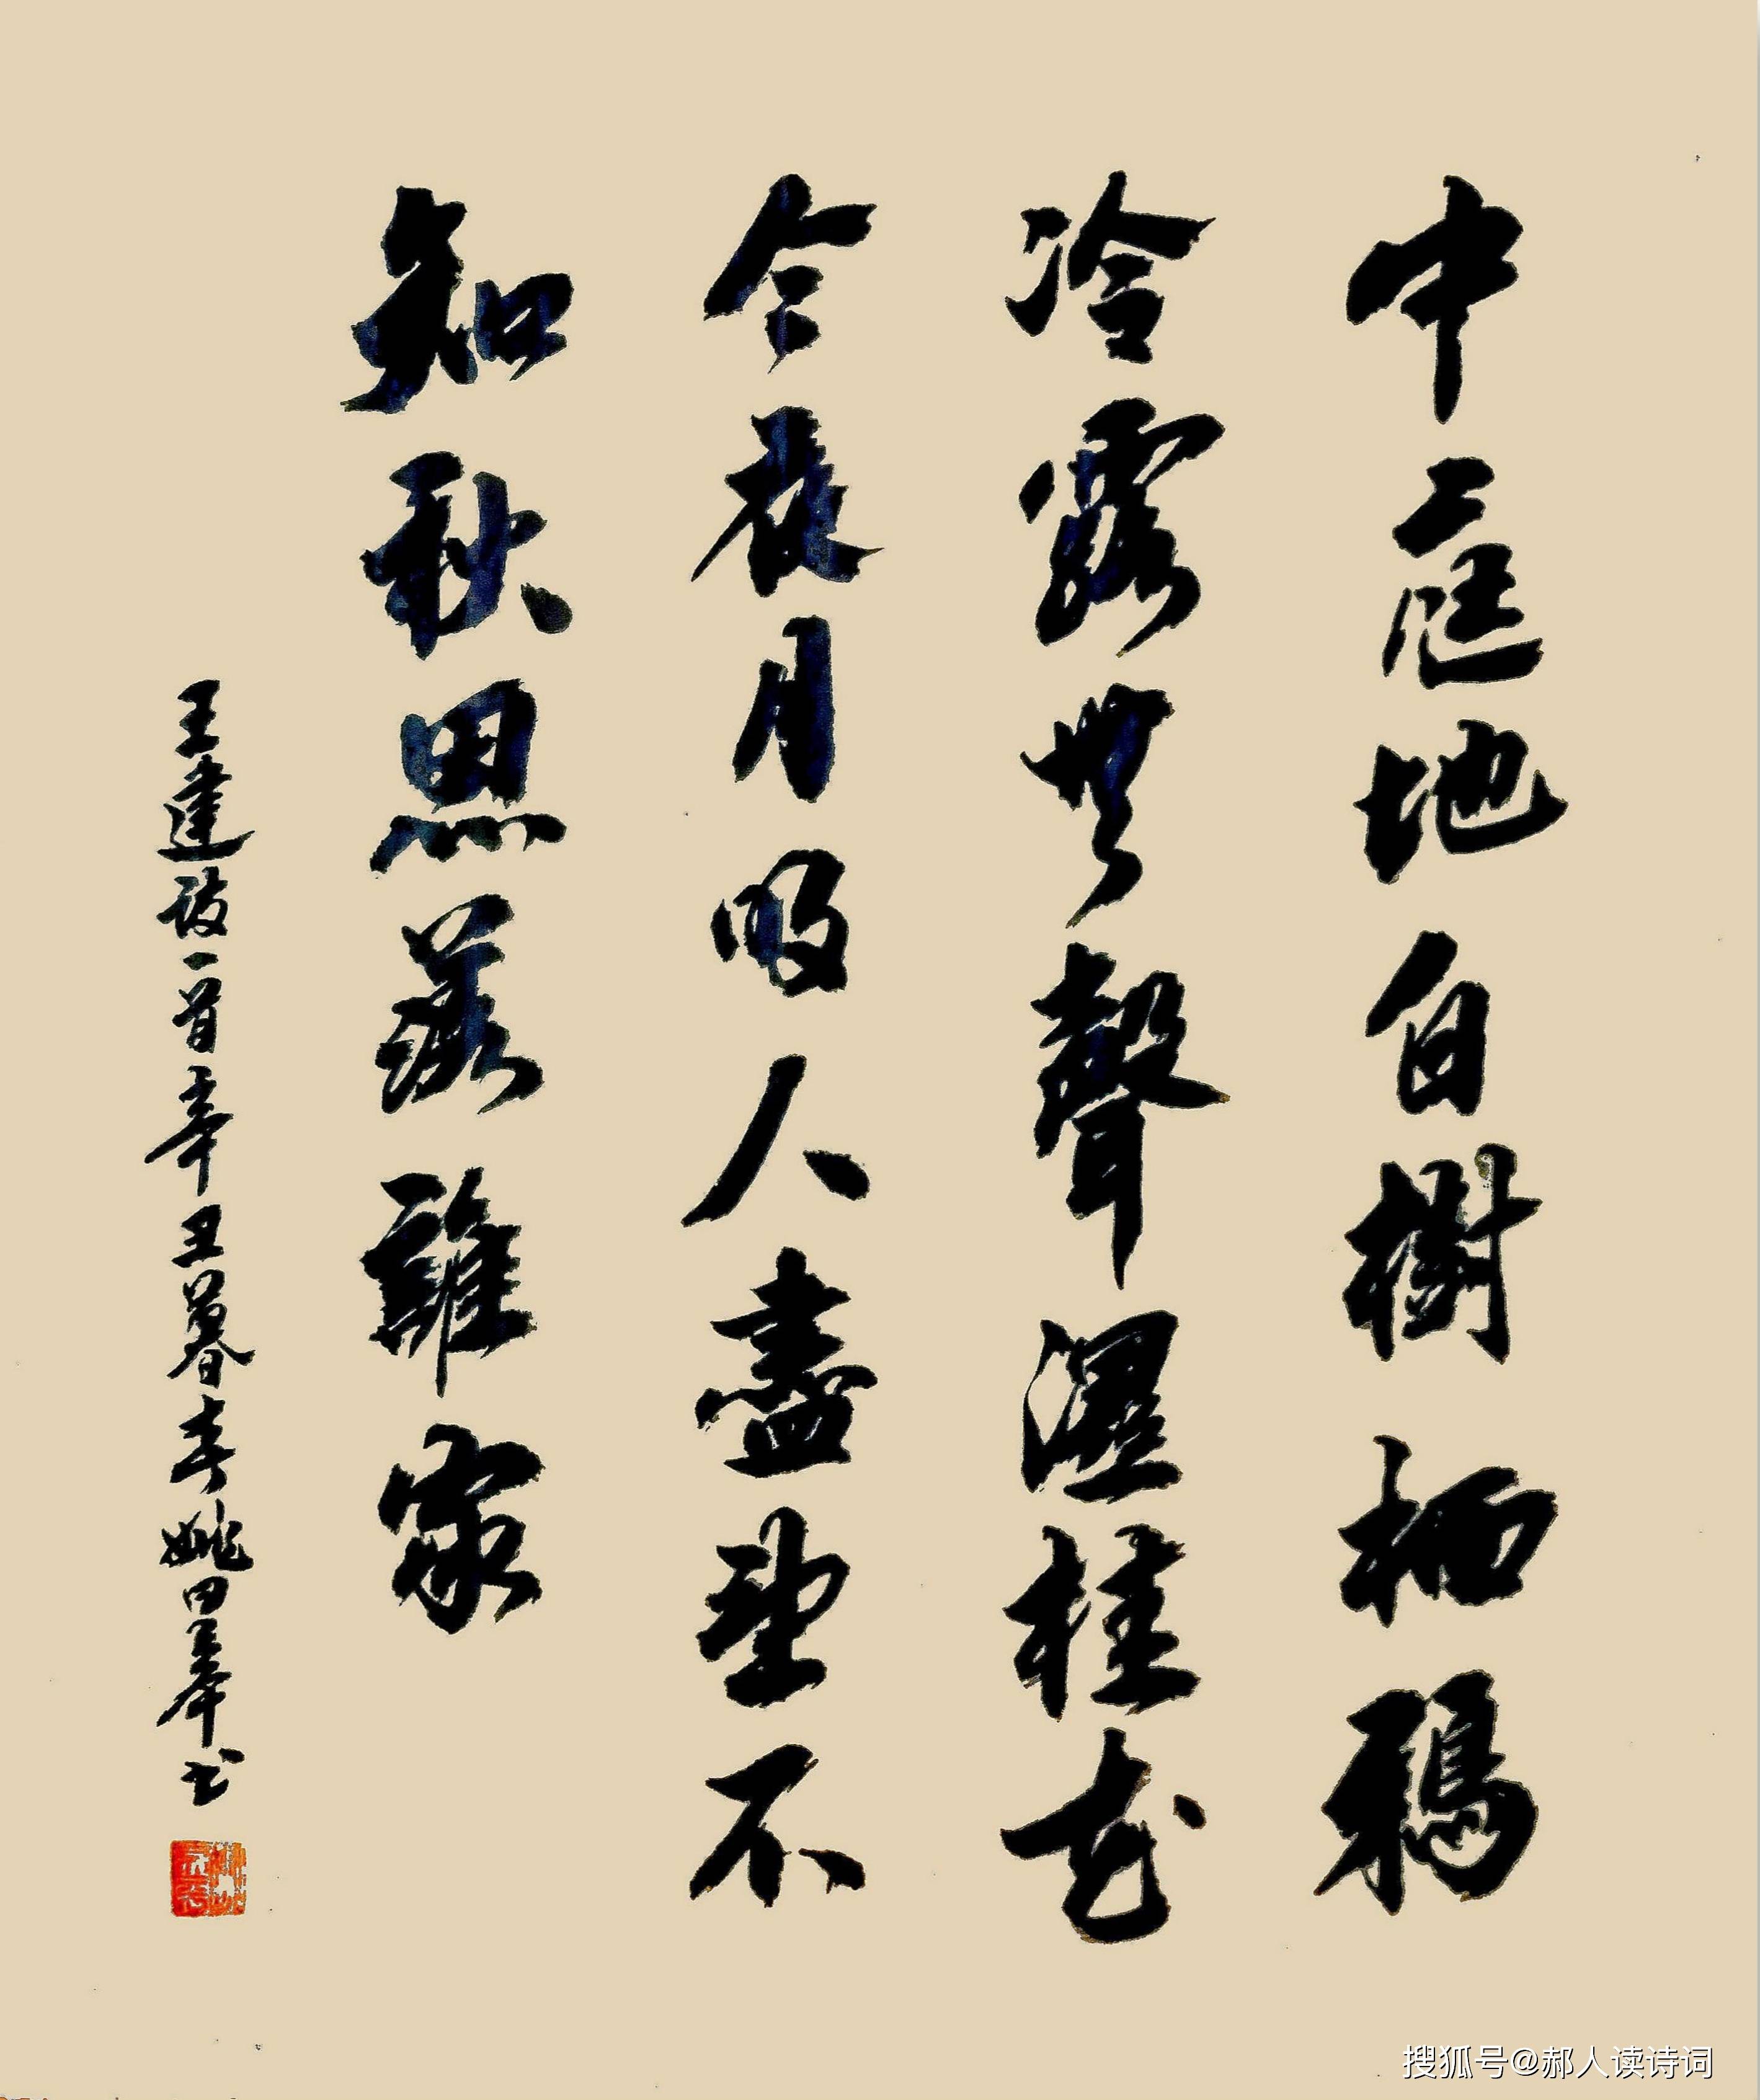 中庭地白樹栖鴉
冷露無聲濕桂花
今夜月明人盡望不
知秋思落誰家
王建诗一首辛丑暮春姚田书
搜狐号@郝人读诗词